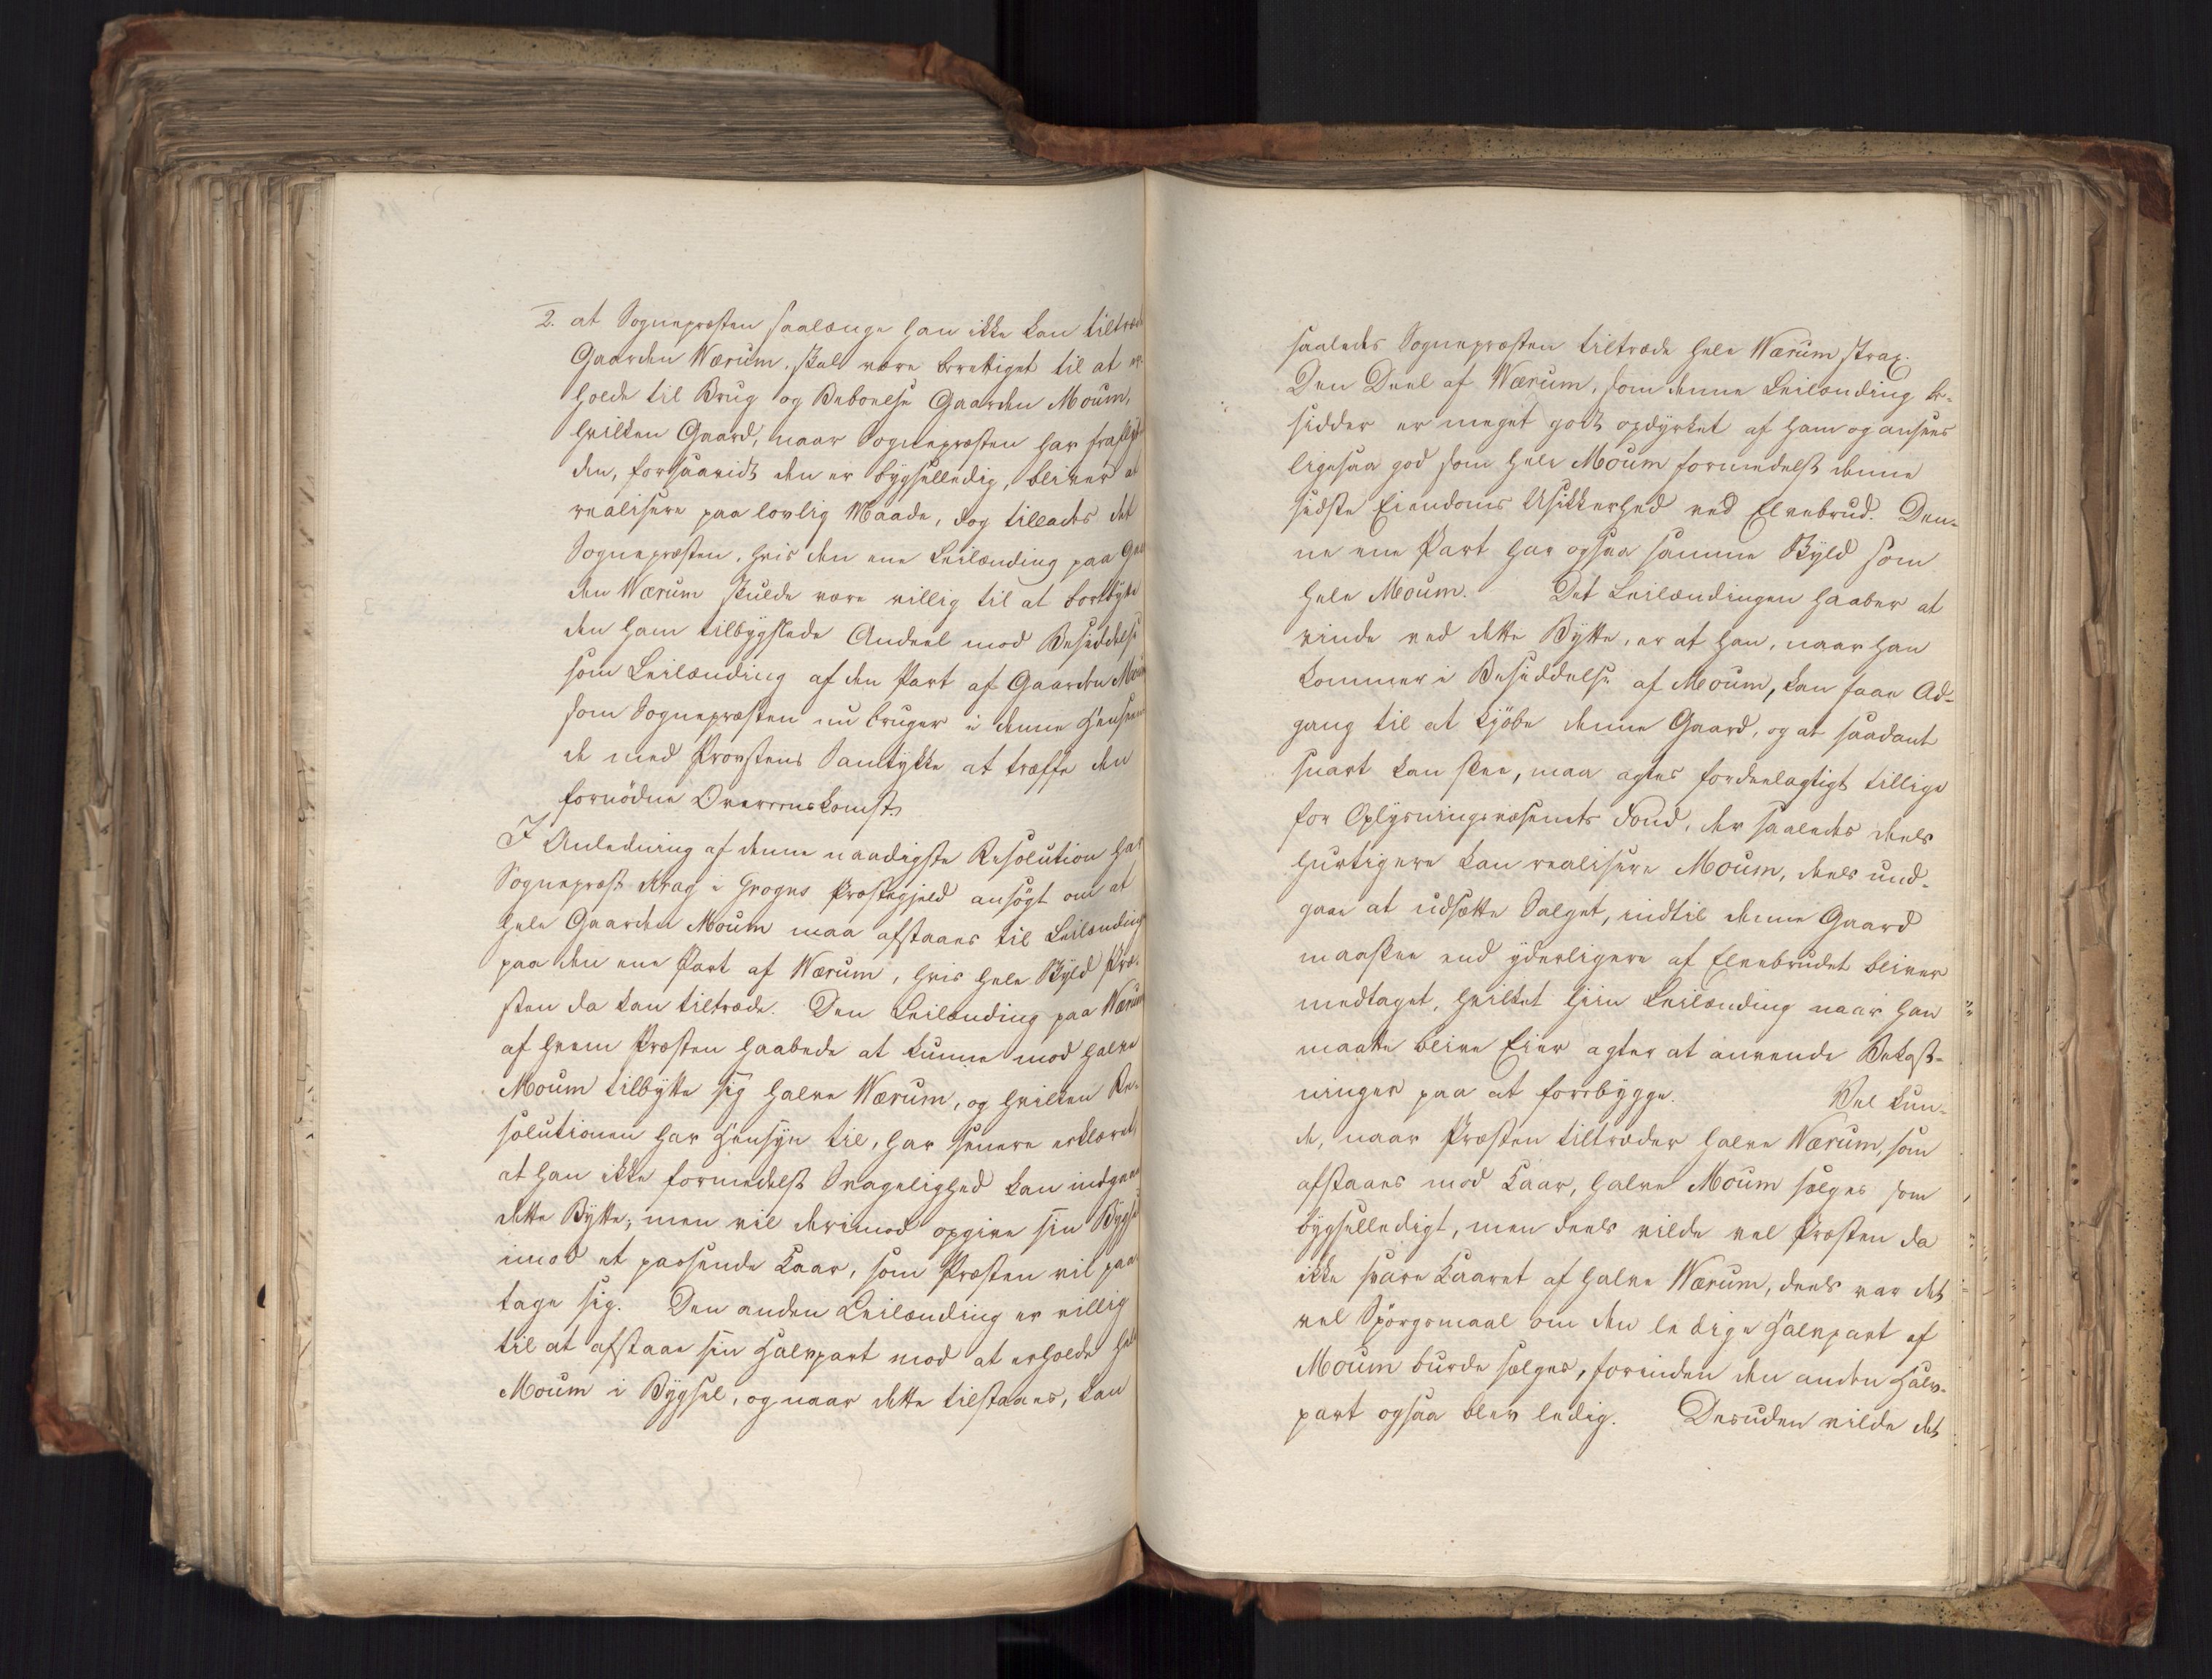 2. at Sognepræsten saalænge han ikke kan tiltræde
Gaarden Wærum, skal være berettiget til at er-
holde til Brug og Beboelse Gaarden Moum,
hvilken Gaard, naar Sognepræsten har fraflyt
den, forsaavidt den er bygselledig, bliver at
realisere paa lovlig Maade, dog tillades det
Sognepræsten, hvis den ene Leilænding paa Gaar
den Wærum skulde være villig til at bortbytte
den ham tilbygslede Andeel mod Besiddelse
som Leilænding af den Part af Gaarden Moum
som Sognepræsten nu bruger i denne Henseen
de med Provstens Samtykke at træffe den
fornödne Overeenskomst.
I Anledning af denne naadigste Resolution har
Sognepræst Krag i Grogns Præstegjeld ansögt om at
hele Gaarden Moum maa afstaaes til Leilænding
paa den ene Part af Wærum, hvis hele Skyld Præ-
sten da kan tiltræde. Den Leilænding paa Wærum
af hvem Præsten haabede at kunne mod halve
Moum tilbytte sig halve Wærum, og hvilken Re-
solutionen har Hensyn til, har senere erklæret,
at han ikke formedelst Svagelighed kan indgaae
dette Bytte, men vil derimod opgive sin Bygsel
imod et passende Kaar, som Præsten vil paa
tage sig. Den anden Leilænding er villig
til at afstaae sin Halvpart mod at erholde hele
Moum i Bygsel, og naar dette tilstaaes, kan
saaledes Sognepræsten tiltræde hele Wærum strax.
Den Deel af Wærum, som denne Leilænding be-
sidder er meget godt opdyrket af ham og ansees
ligesaa god som hele Moum formedelst denne
sidste Eiendoms Usikkerhed ved Elvebrud. Den-
ne ene Part har ogsaa samme Skyld som
hele Moum. Det Leilændingen haaber at
vinde ved dette Bytte, er at han, naar han
kommer i Besiddelse af Moum, kan faae Ad-
gang til at kjöbe denne Gaard, og at saadant
snart kan skee, maa agtes fordeelagtigt tillige
for Oplysningsvæsenets Fond, der saaledes deels
hurtigere kan realisere Moum, deels und-
gaae at udsætte Salget, indtil denne Gaard
maaskee end yderligere af Elvebrudet bliver
medtaget, hvilket hiin Leilænding naar han
maatte blive Eier agter at anvende Bekost-
ninger paa at forebygge. Vel kun-
de, naar Præsten tiltræder halve Wærum, som
afstaaes mod Kaar, halve Moum sælges som
bygselledigt, men deels vilde vel Præsten da
ikke svare Kaaret af halve Wærum, deels var det
vel Spörgsmaal om den ledige Halvpart af
Moum burde sælges, forinden den anden Halv-
part ogsaa blev ledig. Desuden vilde det